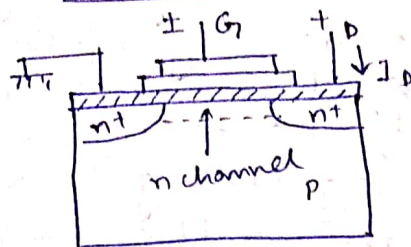 ± G + D
I_D
n+ n+
n channel
p